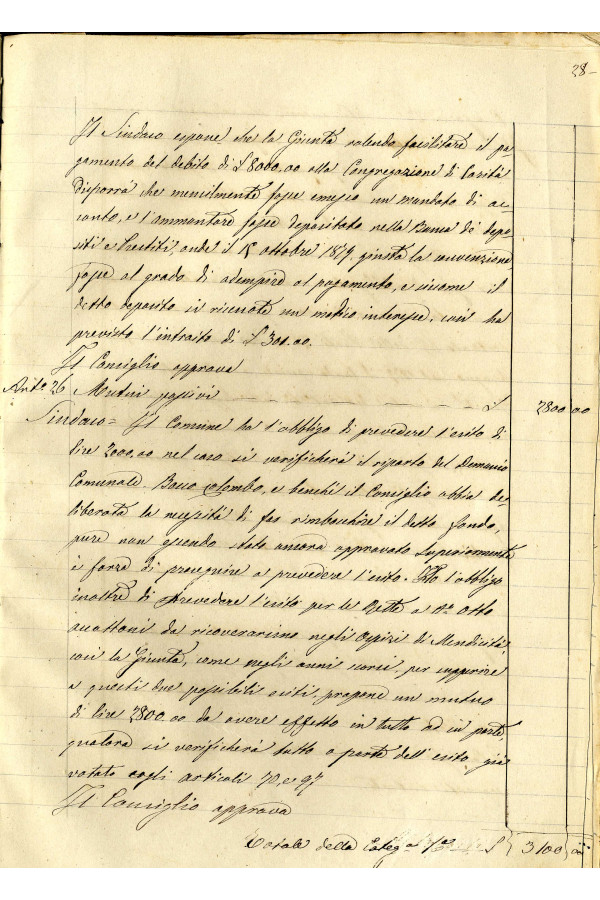 28-
Il Sindaco espone, che la Giunta volendo facilitare il pa-
gamento del debito di £ 8000,00 alla Congregazione di Carità
disporrà che mensilmente fosse emesso un mandato di ac-
conto, e l'ammontare fosse depositato nella Banca de' depo-
siti e Prestiti, onde il 15 ottobre 1879, giusta la convenzione,
fosse al grado di adempire al pagamento, e siccome il
detto deposito si riscuote un modico interesse, così ha
previsto l'introito di £ 300.00.
Il Consiglio approva
Arto 26 Mutui passivi £ 2800 00
Sindaco = Il Comune ha l'obbligo di prevedere l'esito di
lire 2000,00 nel caso si verificherà il riparto del Demanio
Comunale Bosco Colombo, e benchè il Consiglio abbia de-
liberata la necessità di far rimboschire il detto fondo,
pure non essendo stato ancora approvato Superiormente
è forza di proseguire a prevedere l'esito. Ho l'obbligo
inoltre di prevedere l'esito per le Rette a Otto
accattoni da ricoverarsine negli Ospizi di Mendicità,
così la Giunta, come negli anni scorsi, per supperire
a questi due possibili esiti, propone un mutuo
di lire 2800.00 da avere effetto in tutto od in parte
qualora si verificherà tutto o parte dell'esito già
votato cogli articoli 70, e 97
Il Consiglio approva
Totale della Categ £ 3100 00